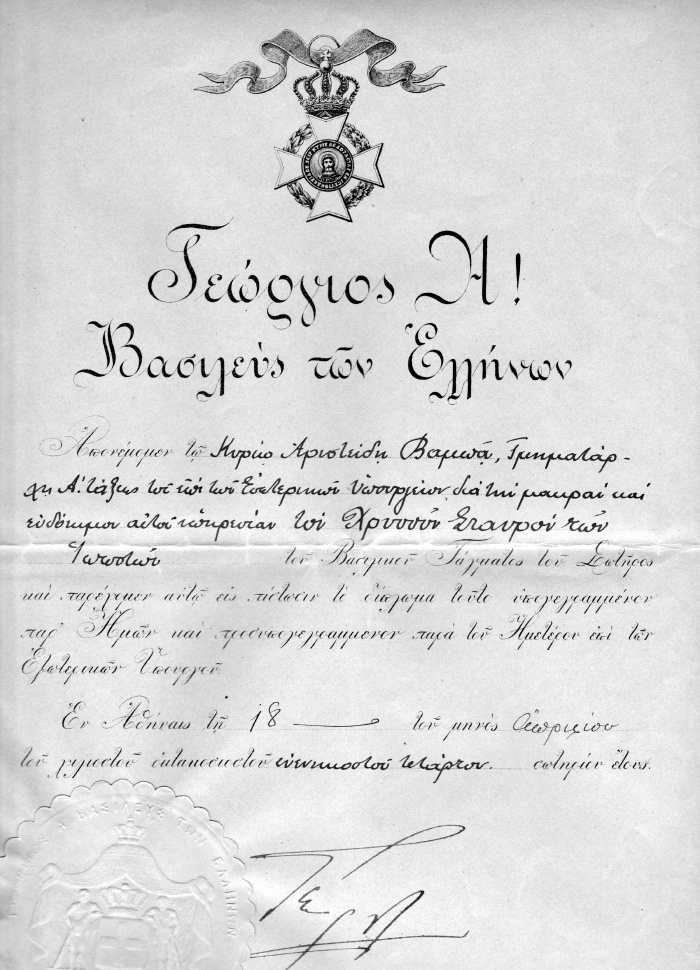 Γεώργιος Α!
Βασιλεὺς τῶν Ἑλλήνων
Ἀπονέμομεν τῷ Κυρίῳ Ἀριστείδῃ Βαμπᾷ, Τμηματάρ-
χῃ Α. τάξεως τοῦ ἐπὶ τῶν Ἐσωτερικῶν Ὑπουργείου, διὰ τὴν μακρὰν καὶ
εὐδόκιμον αὐτοῦ ὑπηρεσίαν τὸν Χρυσοῦν Σταυρὸν τῶν
Ἱπποτῶν τοῦ Βασιλικοῦ Τάγματος τοῦ Σωτῆρος
καὶ παρέχομεν αὐτῷ εἰς πίστωσιν τὸ δίπλωμα τοῦτο ὑπογεγραμμένον
παρ' Ἡμῶν καὶ προσυπογεγραμμένον παρὰ τοῦ Ἡμετέρου ἐπὶ τῶν
Ἐξωτερικῶν Ὑπουργοῦ
Ἐν Ἀθήναις τῇ 18 τοῦ μηνὸς Ἀπριλίου
τοῦ χιλιοστοῦ ὀκτακοσιοστοῦ ἐννενηκοστοῦ τετάρτου. σωτηρίου ἔτους.
Α ΒΑΣΙΛΕΥΣ ΤΩΝ ΕΛΛΗΝΩΝ